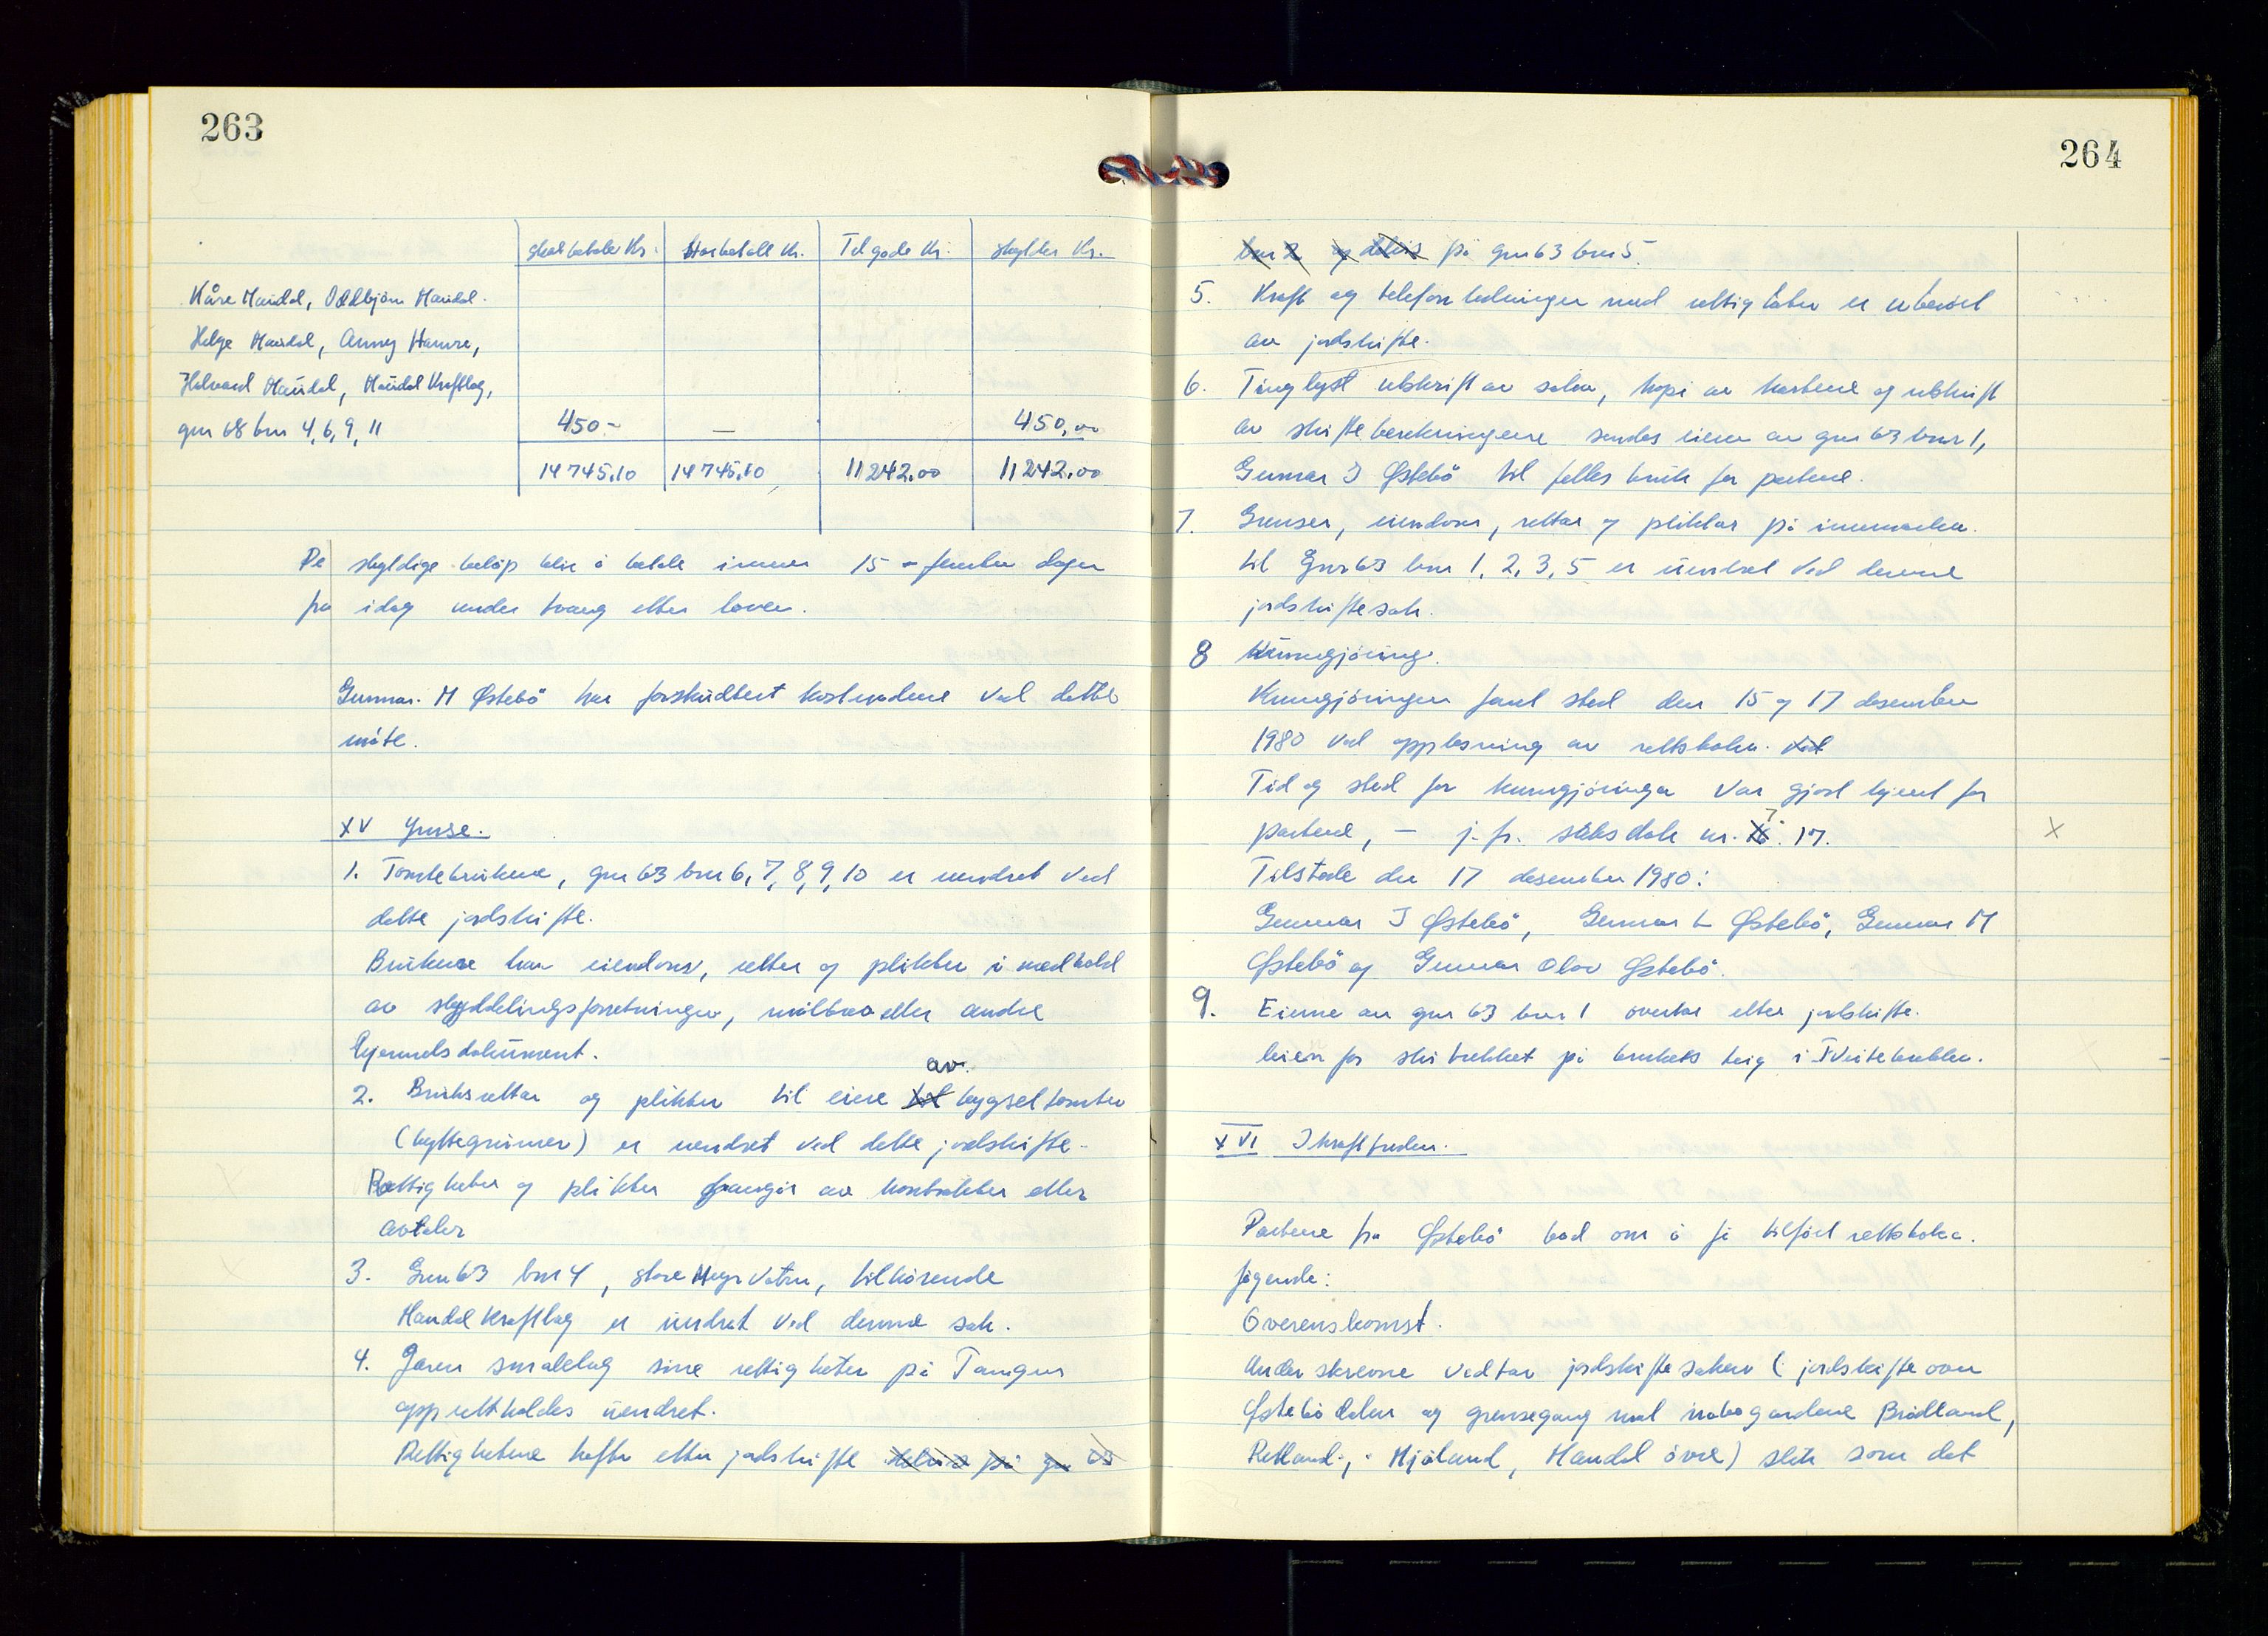 263
Skal betale Kr. Har betalt Kr. Tilgode Kr. skylder Kr.
Kåre Haudal, Oddbjörn Haudal.
Helge Haudal, Anny Hamre,
Halvard Haudal, Haudal Kraftlag,
gnr 68 bnr 4, 6, 9, 11 450- — 450,00
14745,10 14745,10 11242.00 11242.00
De skyldige belöp blir å betale innen 15 - femten dager
fra idag under tvang etter loven.
Gunnar M Østebö har forskuddtert kostnadene ved dette
möte.
XV Ymse.
1. Tomtebrukene, gnr 63 bnr 6, 7, 8, 9, 10 er uendret ved
dette jordskifte.
Brukene har eiendom, retter og plikter i medhold
av skylddelingsforretninger, målbrev eller andre
hjemmelsdokument.
av
2. Bruksrettar og plikter til eiere til bygseltomter
(hyttegrunner) er uendret ved dette jordskifte.
Rettigheter og plikter framgår av kontrakter eller
avtaler
3. Gnr 63 bnr 4, store vatn, tilhörende
Haudal Kraftlag er uendret ved denne sak.
4. Jæren smalelag sine rettigheter på
opprettholdes uendret.
Rettighetene hefter etter jordskifte delvis på gnr 63
264
bnr 2 og delvis på gnr 63 bnr 5.
5. Kraft og telefon ledninger med rettigheter er uberört
av jordskifte.
6. Tinglyst utskrift av saken, kopi av kartene og utskrift
av skifteberekningene sendes eieren av gnr 63 bnr 1,
Gunnar J Østebö til felles bruk for partene.
7. Grenser, eiendom, rettar og pliktar på innmarka
til Gnr 63 bnr 1, 2, 3, 5 er uendret ved denne
jordskiftesak.
8 Kunngjöring.
Kunngjöringen fant sted den 15 og 17 desember
1980 ved opplesning av rettsboken. ved
Tid og sted for kunngjöringa var gjort kjent for
partene, — j.fr. saksdok nr. 16. 17.
X
Tilstede den 17 desember 1980:
Gunnar J Østebö, Gunnar L Østebö, Gunnar M
Østebö og Gunnar Olav Østebö.
9. Eierne av gnr 63 bnr 1 overtar etter jordskifte.
leien for skitrekket på brukets teig i
XVI Ikrafttreden.
Partene fra Østebö bad om å få tilföiet rettsboka.
fögende:
Overenskomst.
Underskrevne vedtar jordskiftesaken (jordskifte over
Østebö dalen og grensegang mot nabogardene Brådland,
Retland, Mjåland, Haudal övre) slik som det